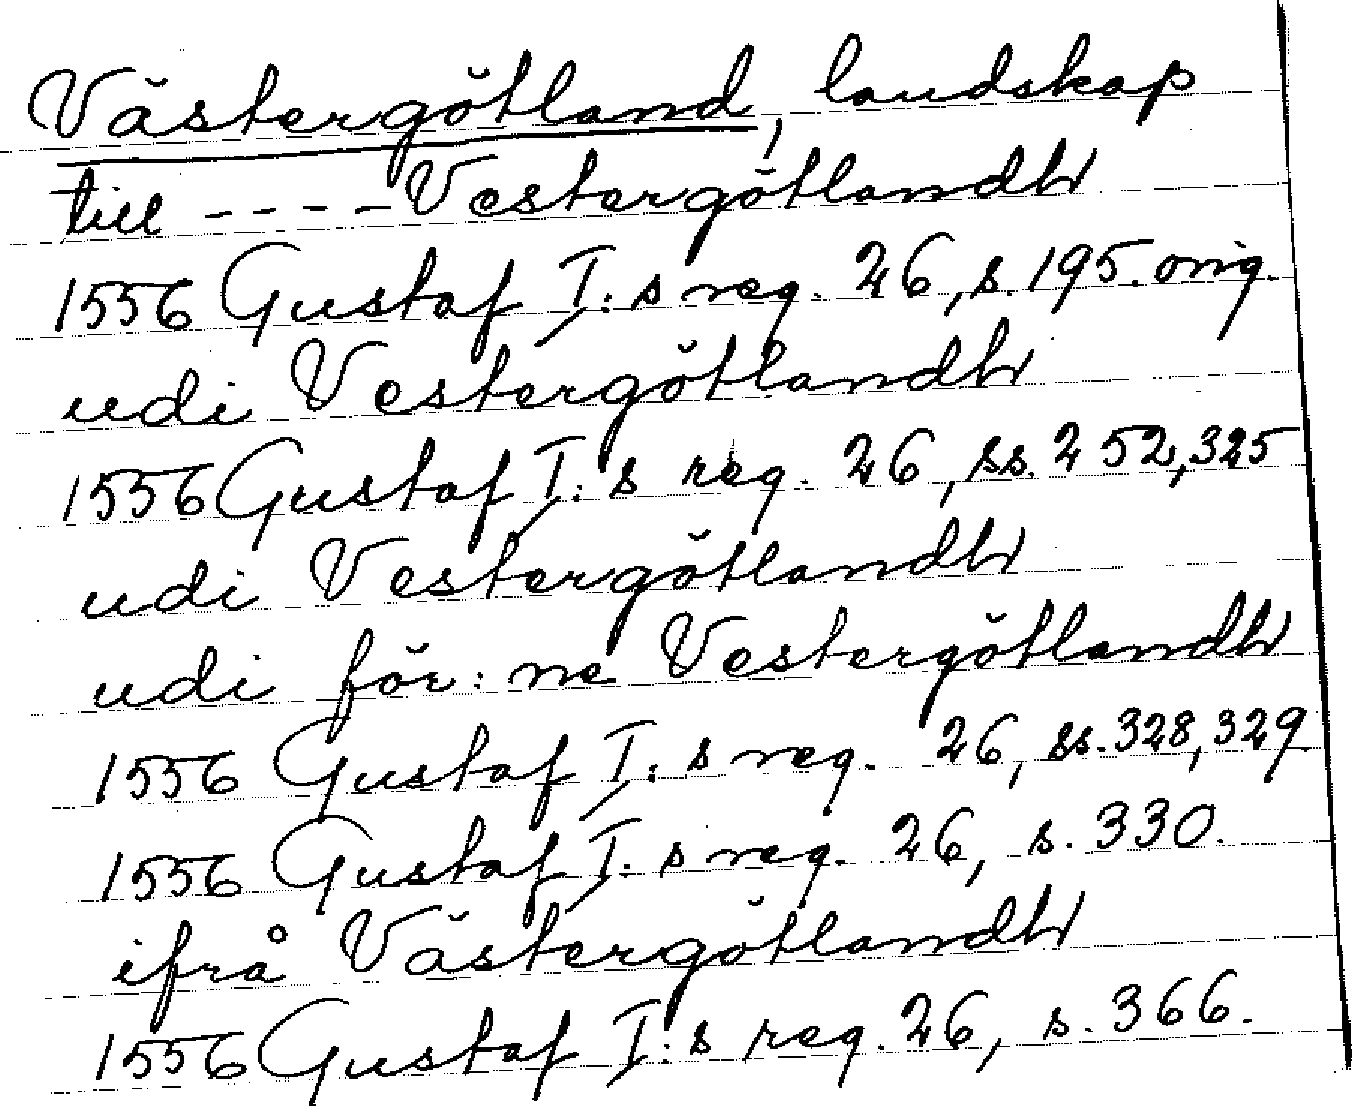 Västergötland, landskap
till ---- Vestergötlandh
1556 Gustaf I:s reg. 26, s. 195. orig.
udi Vestergötlandh
1556 Gustaf I:s reg. 26, ss. 252, 325
udi Vestergötlandh
udi för:ne Vestergötlandh
1556 Gustaf I:s reg. 26, ss. 328, 329
1556 Gustaf I:s reg. 26, s. 330.
ifrå Västergötlandh
1556 Gustaf I:s reg. 26, s. 366.